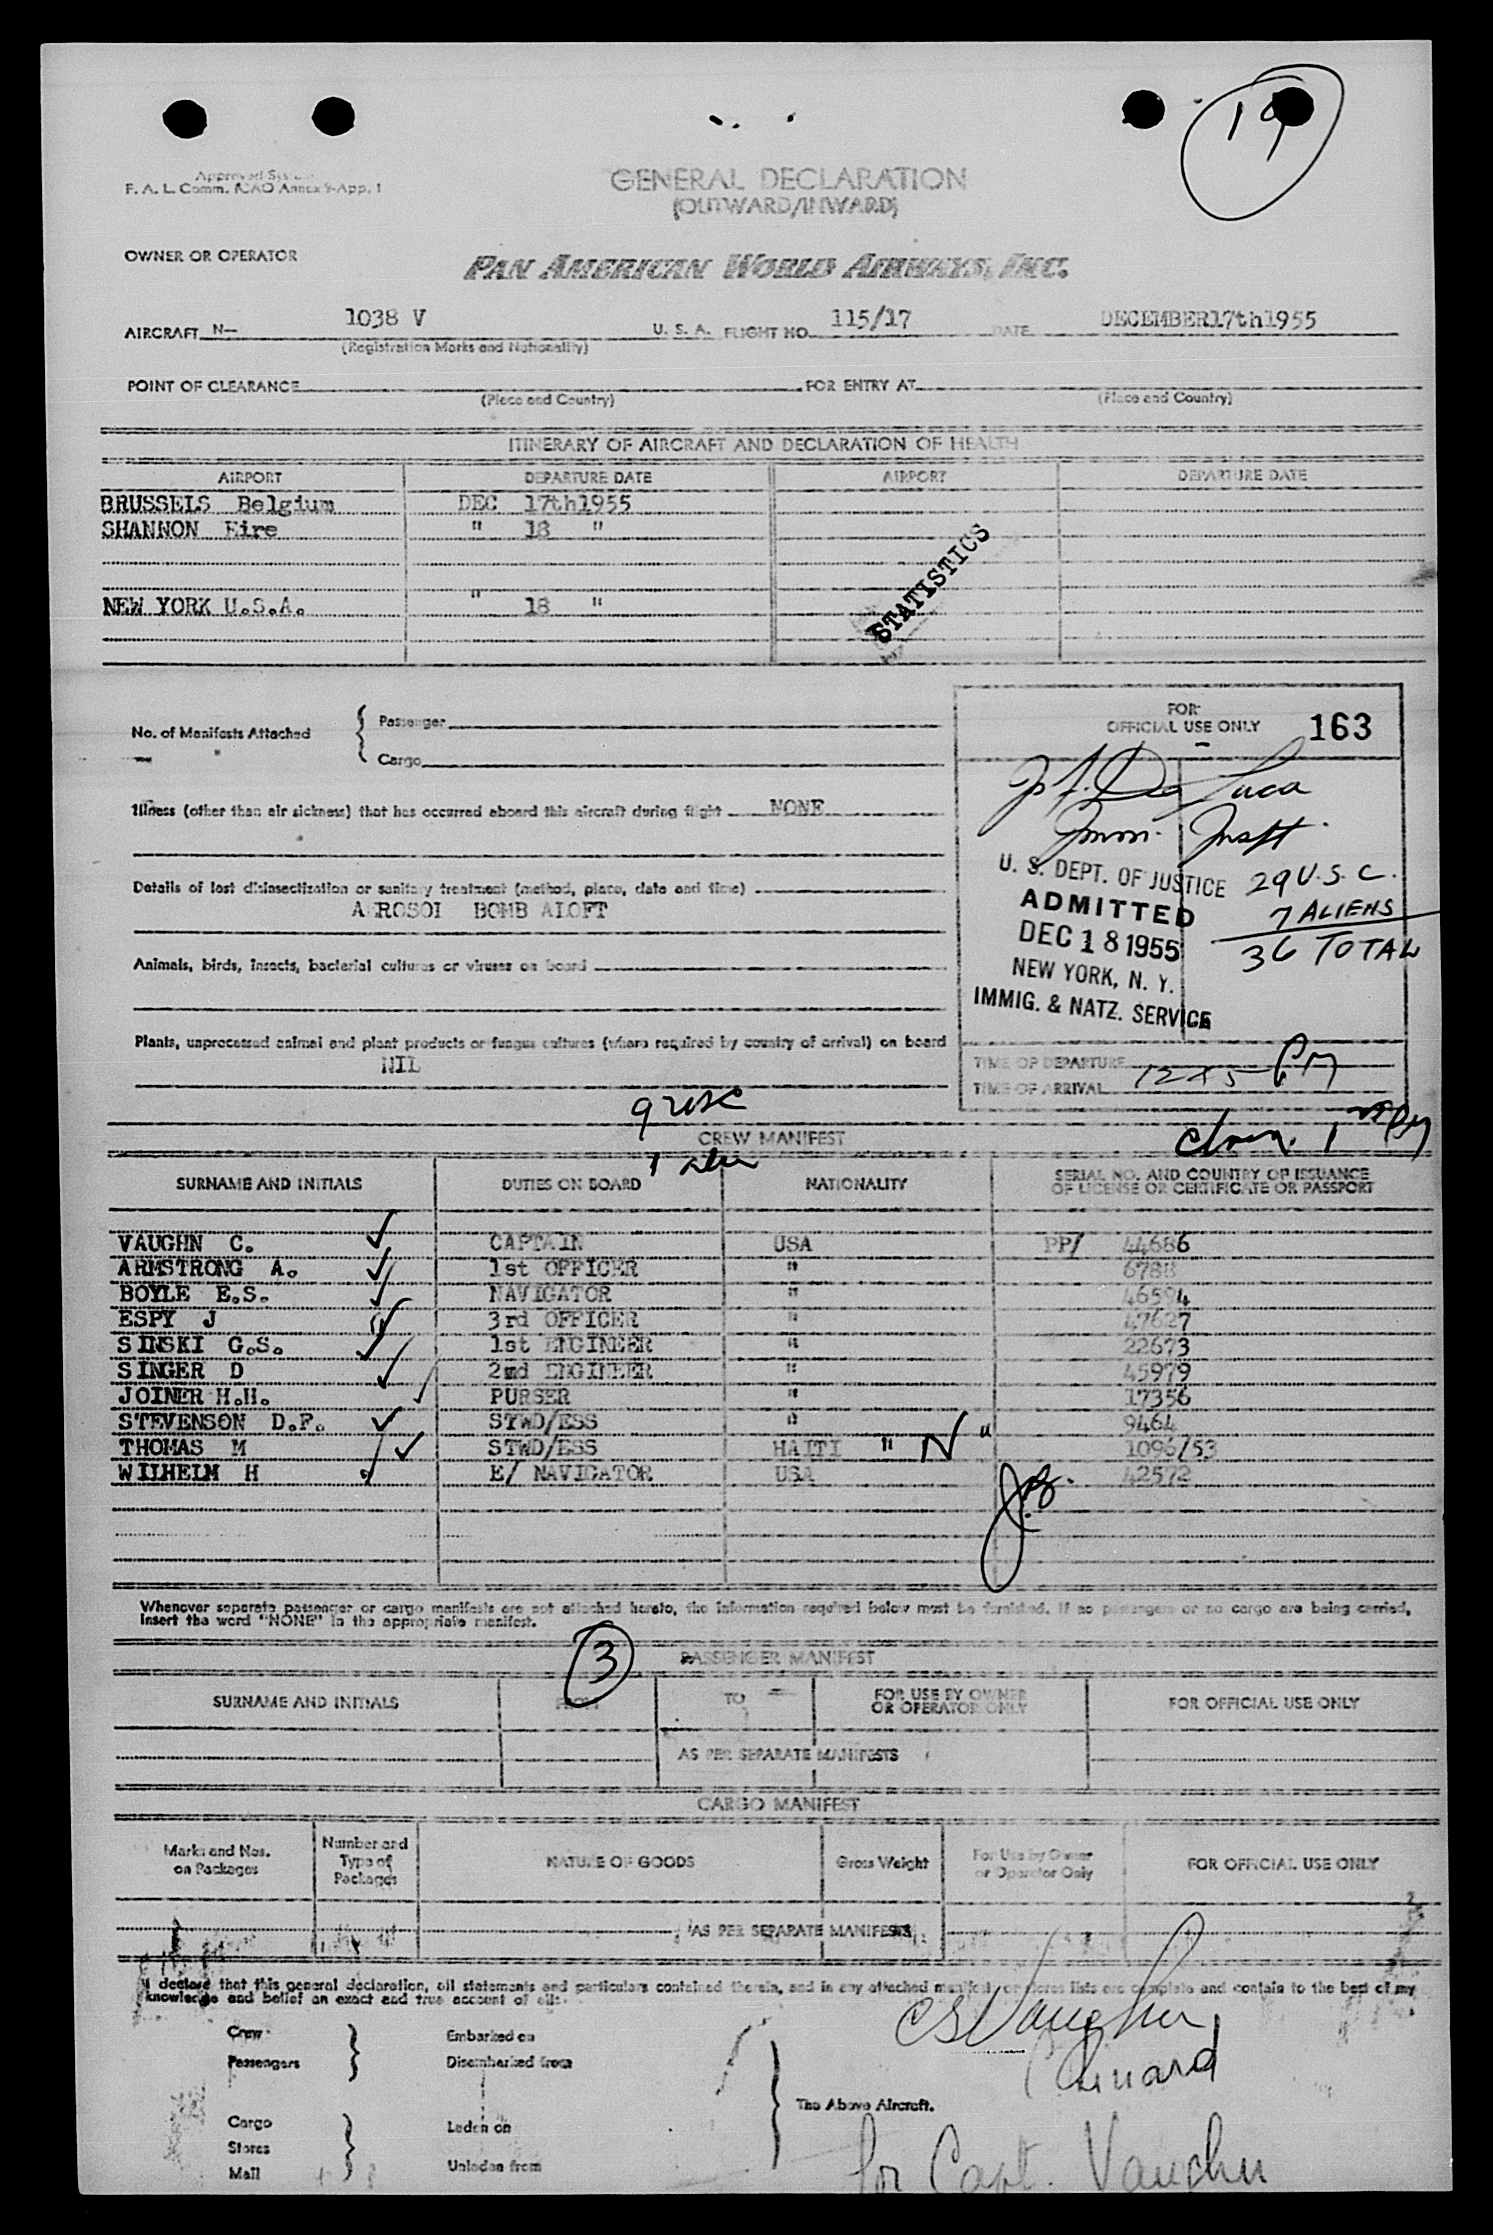 19
F. A. L. Comm. ICAO Annex 9-App. 1
GENERAL DECLARATION
(OUTWARD/INWARD)
OWNER OR OPERATOR
PAN AMERICAN WORLD AIRWAYS, INC.
AIRCRAFT N- 1038 V U. S. A. FLIGHT NO. 115/17 DATE DECEMBER17th1955
(Registration Marks and Nationality)
POINT OF CLEARANCE FOR ENTRY AT
(Place and Country) (Place and Country)
ITINERARY OF AIRCRAFT AND DECLARATION OF HEALTH
AIRPORT DEPARTURE DATE AIRPORT DEPARTURE DATE
BRUSSELS Belgium DEC 17th1955
SHANNON Eire " 18 "
NEW YORK U.S.A. " 18 "
STATISTICS
No. of Manifests Attached { Passenger
Cargo
FOR
OFFICIAL USE ONLY 163
J. F. De Luca
Imm. Inspt.
Illness (other than air sickness) that has occurred aboard this aircraft during flight NONE
Details of last disinsectization or sanitary treatment (method, place, date and time)
AEROSOL BOMB ALOFT
U. S. DEPT. OF JUSTICE
ADMITTED
DEC 18 1955
NEW YORK, N. Y.
IMMIG. & NATZ. SERVICE
29 U.S.C.
7 ALIENS
36 TOTAL
Animals, birds, insects, bacterial cultures or viruses on board
Plants, unprocessed animal and plant products or fungus cultures (where required by country of arrival) on board
NIL
TIME OF DEPARTURE
TIME OF ARRIVAL PM
9 USC
1 alien
CREW MANIFEST
SURNAME AND INITIALS DUTIES ON BOARD NATIONALITY SERIAL NO. AND COUNTRY OF ISSUANCE
OF LICENSE OR CERTIFICATE OR PASSPORT
VAUGHN C. CAPTAIN USA PP/ 44686
ARMSTRONG A. 1st OFFICER " 6788
BOYLE E.S. NAVIGATOR " 46594
ESPY J 3rd OFFICER " 47627
SINSKI G.S. 1st ENGINEER " 22673
SINGER D 2nd ENGINEER " 45979
JOINER H.H. PURSER " 17356
STEVENSON D.F. STWD/ESS " 9464
THOMAS M STWD/ESS HAITI " N " 1096/53
WILHELM H E/ NAVIGATOR USA 42572
Whenever separate passenger or cargo manifests are not attached hereto, the information required below must be furnished. If no passengers or no cargo are being carried,
insert the word "NONE" in the appropriate manifest.
3
PASSENGER MANIFEST
SURNAME AND INITIALS FROM TO FOR USE BY OWNER
OR OPERATOR ONLY FOR OFFICIAL USE ONLY
AS PER SEPARATE MANIFESTS
CARGO MANIFEST
Marks and Nos.
on Packages Number and
Type of
Packages NATURE OF GOODS Gross Weight For Use by Owner
or Operator Only FOR OFFICIAL USE ONLY
AS PER SEPARATE MANIFESTS
I declare that this general declaration, all statements and particulars contained therein, and in any attached manifest or stores lists are complete and contain to the best of my
knowledge and belief an exact and true account of all:
CS Vaughn
Crew
Passengers } Embarked on
Disembarked from
Cargo
Stores
Mail } Laden on
Unladen from
} The Above Aircraft.
for Capt. Vaughn